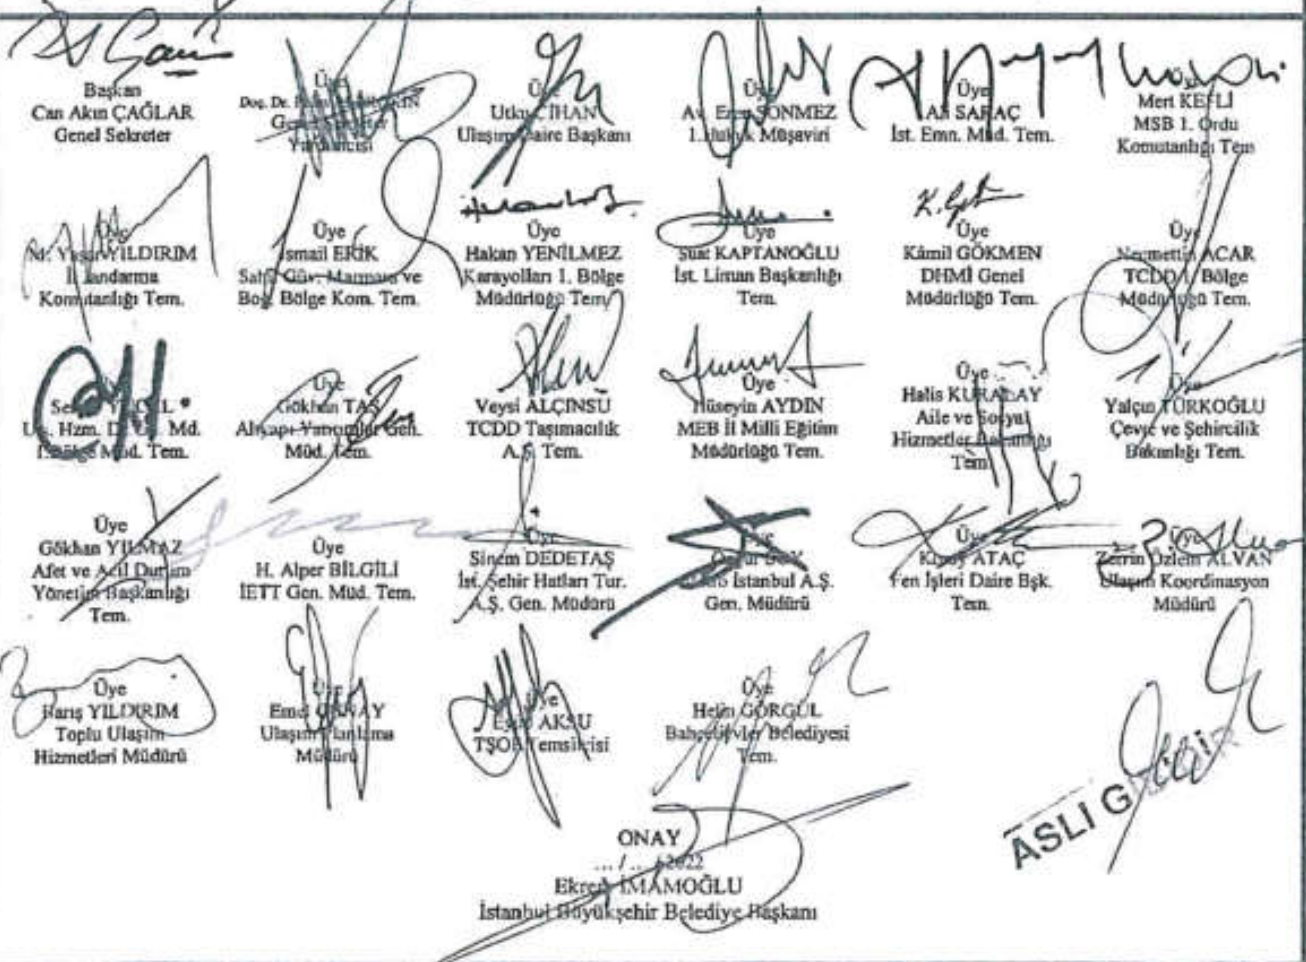 Başkan
Can Akın ÇAĞLAR
Genel Sekreter
Üye
Doç. Dr.
Yardımcısı
Üye
Utku CİHAN
Ulaşım Daire Başkanı
Üye
Av. Eren SÖNMEZ
1. Hukuk Müşaviri
Üye
Ali SARAÇ
İst. Emn. Müd. Tem.
Üye
Mert KEFLİ
MSB 1. Ordu
Komutanlığı Tem
Üye
M. Yaşar YILDIRIM
İl Jandarma
Komutanlığı Tem.
Üye
İsmail ERİK
Sahil Güv. Marmara ve
Boğ. Bölge Kom. Tem.
Üye
Hakan YENİLMEZ
Karayolları 1. Bölge
Müdürlüğü Tem.
Üye
Suat KAPTANOĞLU
İst. Liman Başkanlığı
Tem.
Üye
Kâmil GÖKMEN
DHMİ Genel
Müdürlüğü Tem.
Üye
Necmettin ACAR
TCDD 1. Bölge
Müdürlüğü Tem.
Hzm. Md.
Müd. Tem.
Üye
Gökhan TAŞ
Altyapı Yatırımlar Gen.
Müd. Tem.
Veysi ALÇINSU
TCDD Taşımacılık
A.Ş. Tem.
Üye
Hüseyin AYDIN
MEB İl Milli Eğitim
Müdürlüğü Tem.
Üye
Halis KURALAY
Aile ve Sosyal
Hizmetler Bakanlığı
Tem.
Üye
Yalçın TÜRKOĞLU
Çevre ve Şehircilik
Bakanlığı Tem.
Üye
Gökhan YILMAZ
Afet ve Acil Durum
Yönetim Başkanlığı
Tem.
Üye
H. Alper BİLGİLİ
İETT Gen. Müd. Tem.
Üye
Sinem DEDETAŞ
İst. Şehir Hatları Tur.
A.Ş. Gen. Müdürü
İstanbul A.Ş.
Gen. Müdürü
Üye
ATAÇ
Fen İşleri Daire Bşk.
Tem.
Üye
Zerrin Özlem ALVAN
Ulaşım Koordinasyon
Müdürü
Üye
Barış YILDIRIM
Toplu Ulaşım
Hizmetleri Müdürü
Üye
Emel
Ulaşım Planlama
Müdürü
Üye
AKSU
TŞOF Temsilcisi
Üye
Helin GÖRGÜL
Bahçelievler Belediyesi
Tem.
ASLI GİBİDİR
ONAY
... / ... /2022
Ekrem İMAMOĞLU
İstanbul Büyükşehir Belediye Başkanı